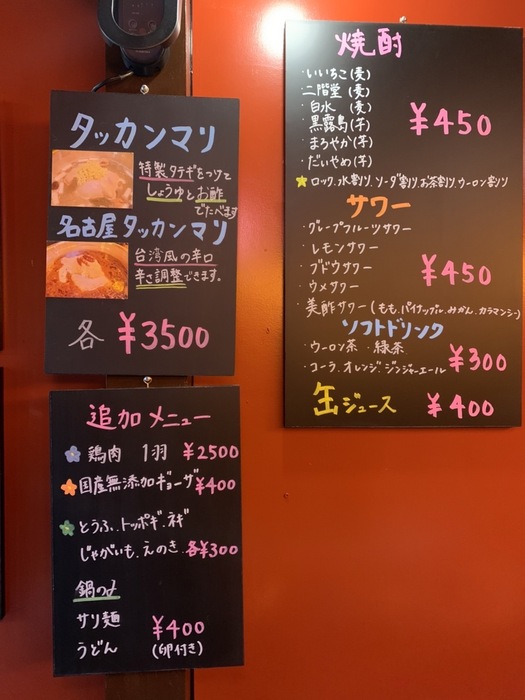 タッカンマリ
特製タテギをつけて
しょうゆとお酢
でたべます
名古屋タッカンマリ
台湾風の辛口
辛さ調整できます。
各 ¥3500
追加メニュー
鶏肉 1羽 ¥2500
国産無添加ギョーザ ¥400
とうふ、トッポギ、ネギ
じゃがいも、えのき、各¥300
鍋の〆
サリ麺
うどん
¥400
(卵付き)
焼酎
・いいちこ(麦)
・二階堂(麦)
・白水(麦)
・黒霧島(芋)
・まろやか(芋)
・だいやめ(芋)
¥450
ロック、水割り、ソーダ割り、お茶割り、ウーロン割り
サワー
・グレープフルーツサワー
・レモンサワー
・ブドウサワー
・ウメサワー
・美酢サワー(もも、パイナップル、みかん、カラマンシー)
¥450
ソフトドリンク
・ウーロン茶・緑茶
・コーラ、オレンジ、ジンジャーエール
¥300
缶ジュース ¥400